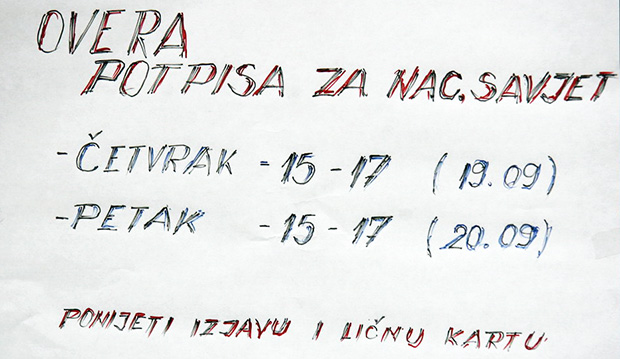 OVERA
POTPISA ZA NAC. SAVJET
- ČETVRAK - 15 - 17 (19.09)
- PETAK - 15 - 17 (20.09)
PONIJETI IZJAVU I LIČNU KARTU.